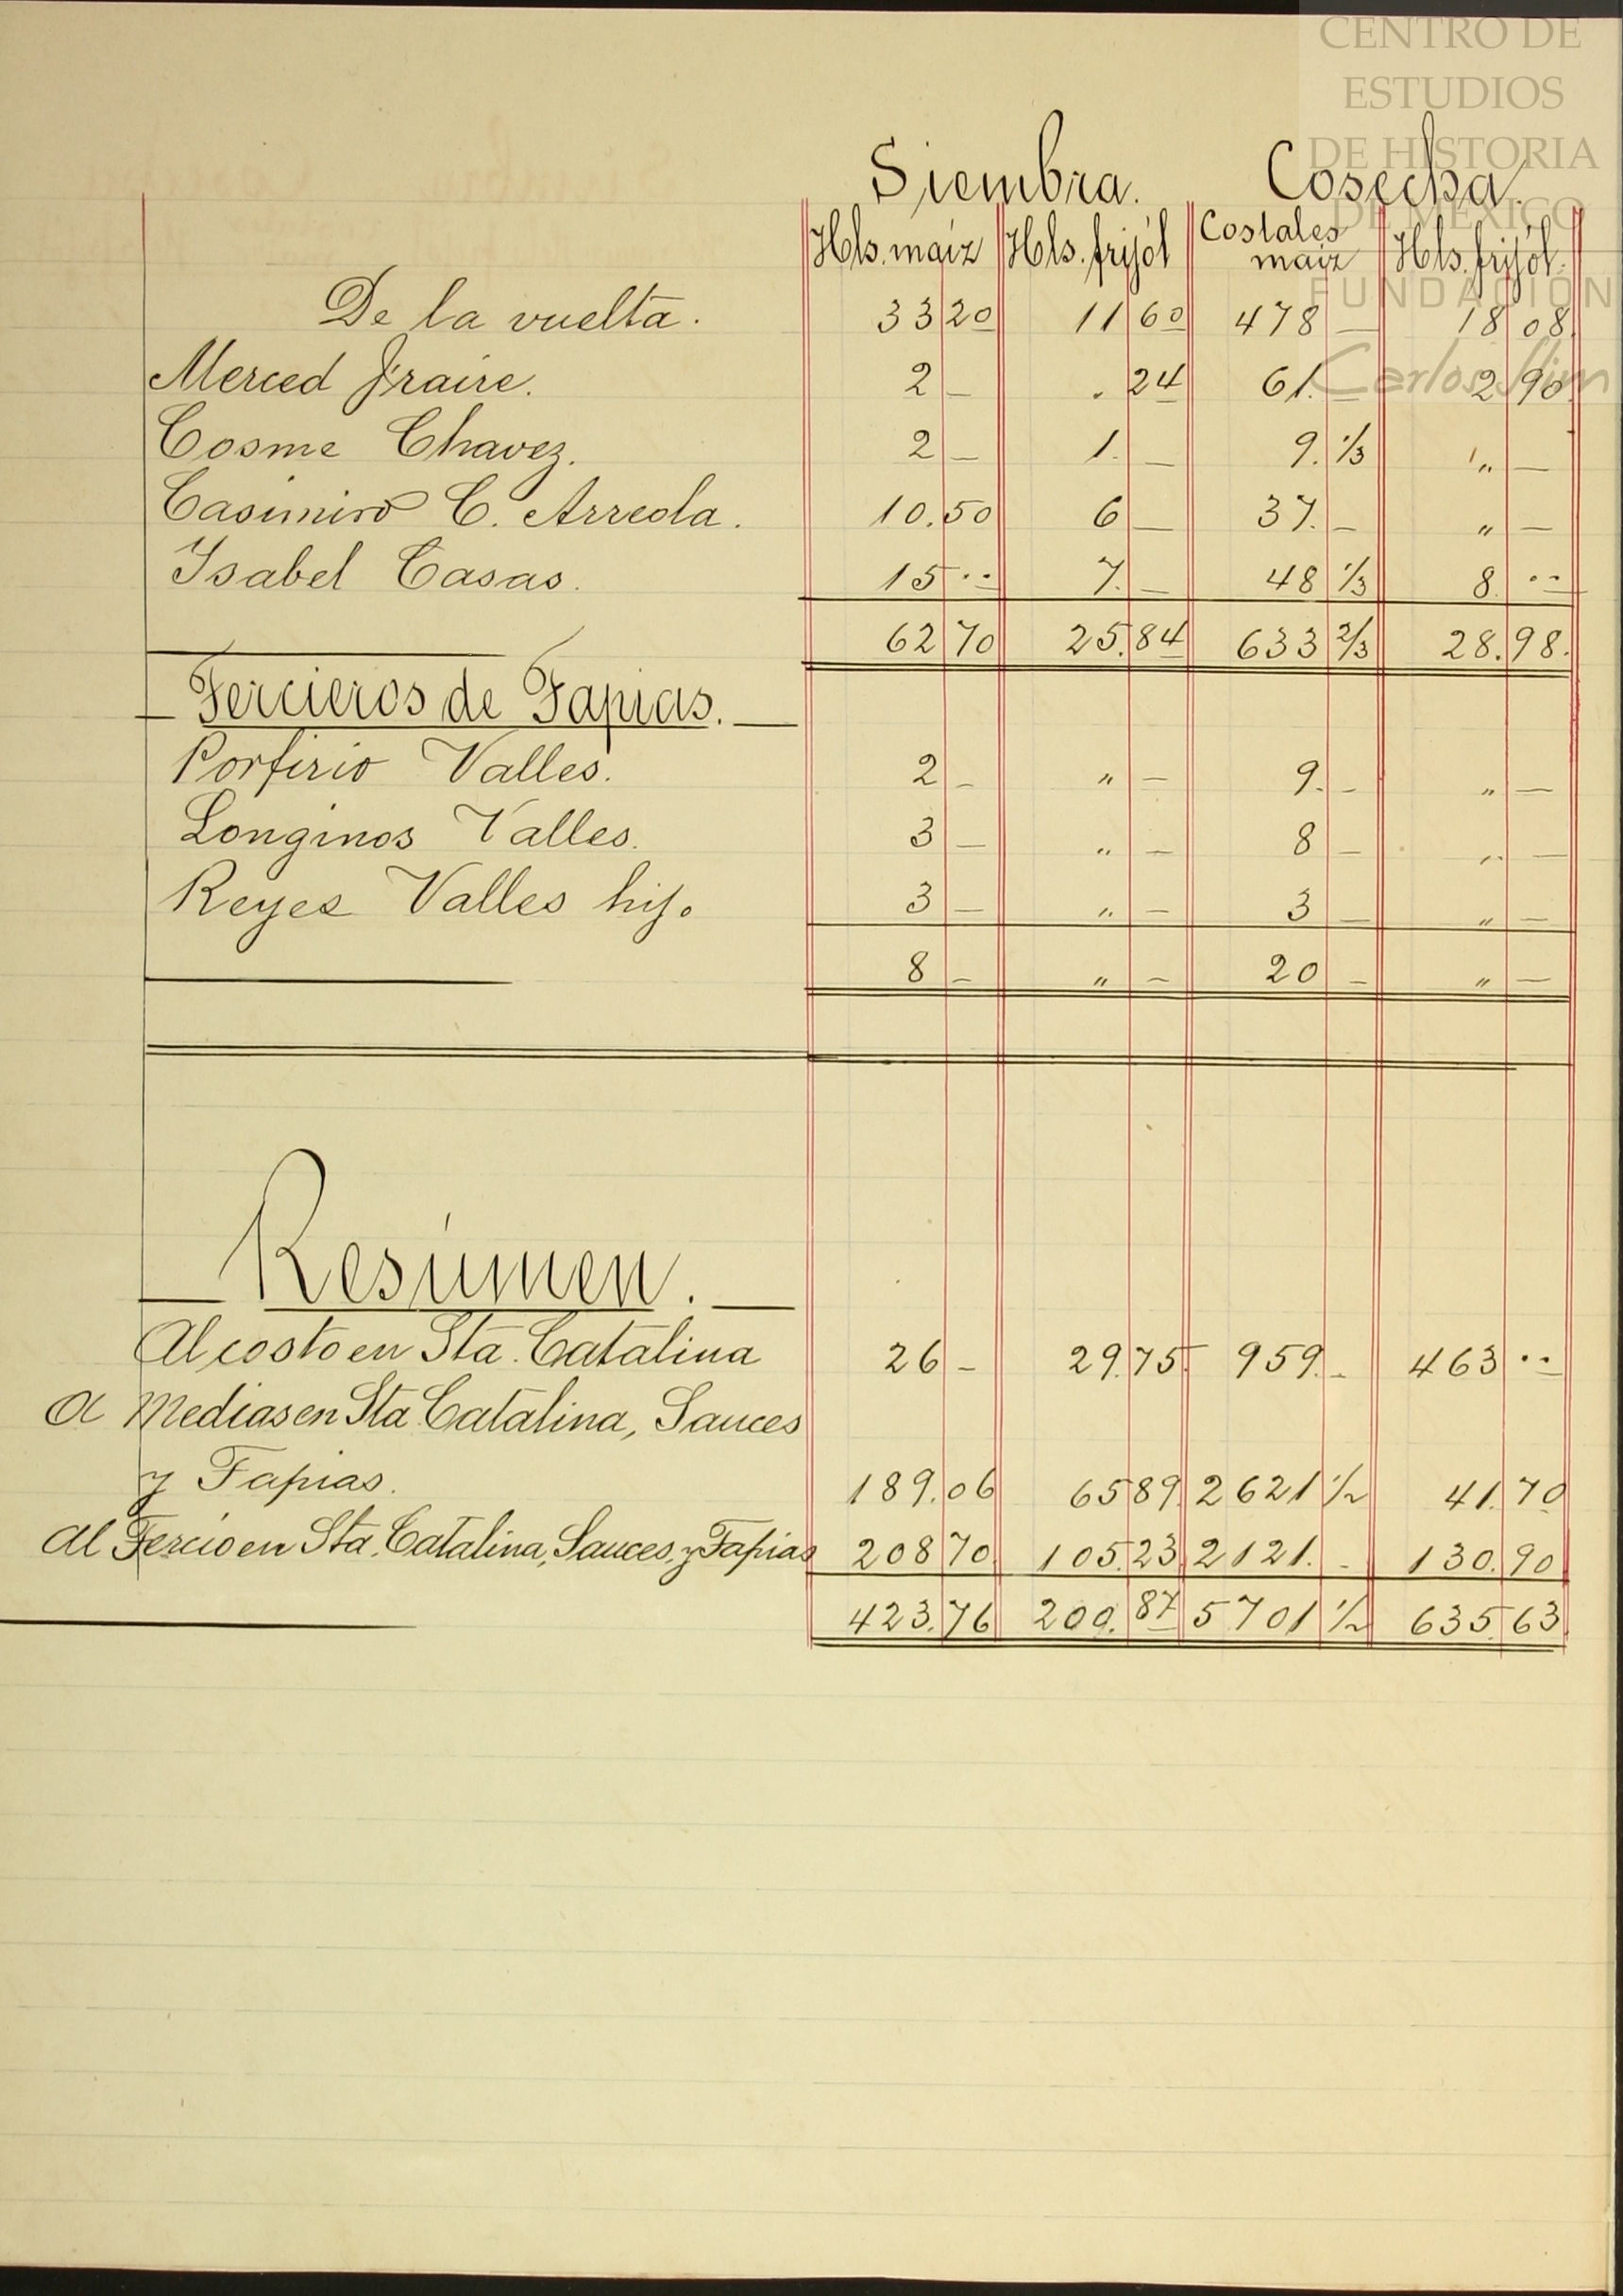 CENTRO DE
ESTUDIOS
DE HISTORIA
DE MÉXICO
FUNDACIÓN
Carlos Slim
Siembra. Cosecha.
Hls. maíz Hls. frijól Costales maíz Hls. frijól.
De la vuelta. 33 20 11 60 478 — 18 08.
Merced Fraire. 2 — . 24 61. — 2 90.
Cosme Chavez. 2 — 1. — 9. 1/3 „ —
Casimiro C. Arreola. 10. 50 6 — 37. — „ —
Isabel Casas. 15 .. 7. — 48 1/3 8. ..
62 70 25. 84 633 2/3 28. 98.
— Tercieros de Tapias. —
Porfirio Valles. 2 — „ — 9. — „ —
Longinos Valles. 3 — „ — 8 — „ —
Reyes Valles hijo 3 — „ — 3 — „ —
8 — „ — 20 — „ —
— Resúmen. —
Al costo en Sta. Catalina 26 — 29. 75. 959. — 463 ..
A Medias en Sta Catalina, Sauces
y Tapias. 189. 06 65 89. 2621 1/2 41. 70
Al Tercio en Sta. Catalina, Sauces, y Tapias 208 70. 105. 23. 2121. — 130. 90
423. 76 200. 87 5701 1/2 635. 63